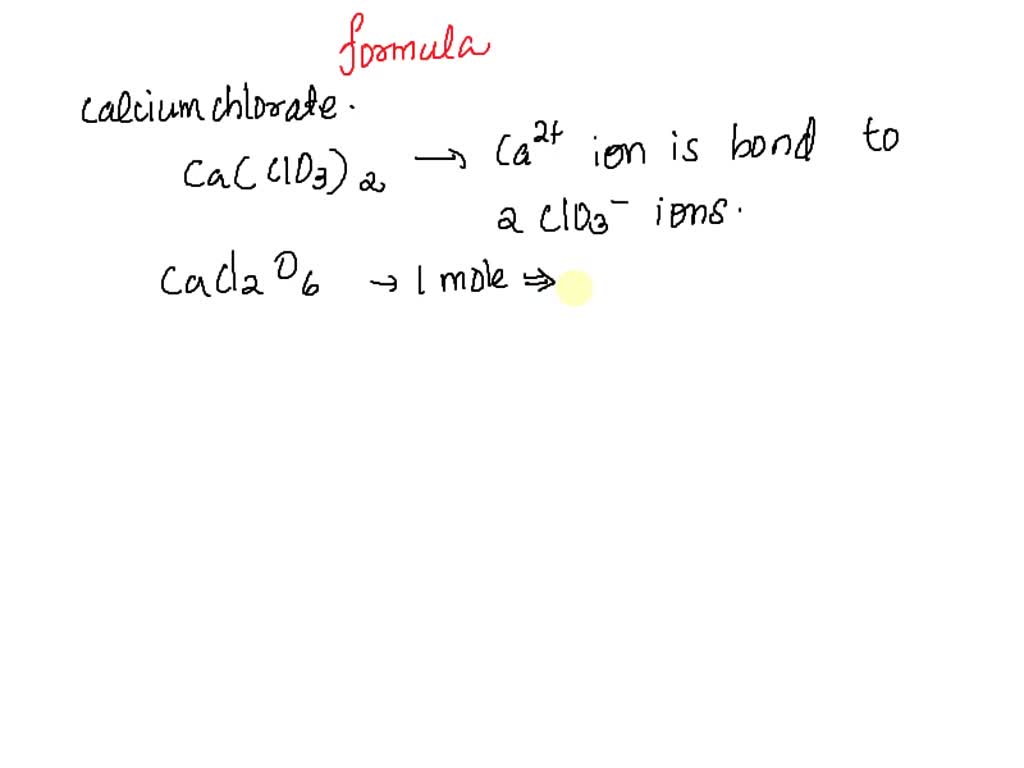 formula
calcium chlorate.
Ca(ClO3)2 → Ca2+ ion is bond to
2 ClO3- ions.
CaCl2O6 → 1 mole ⇒